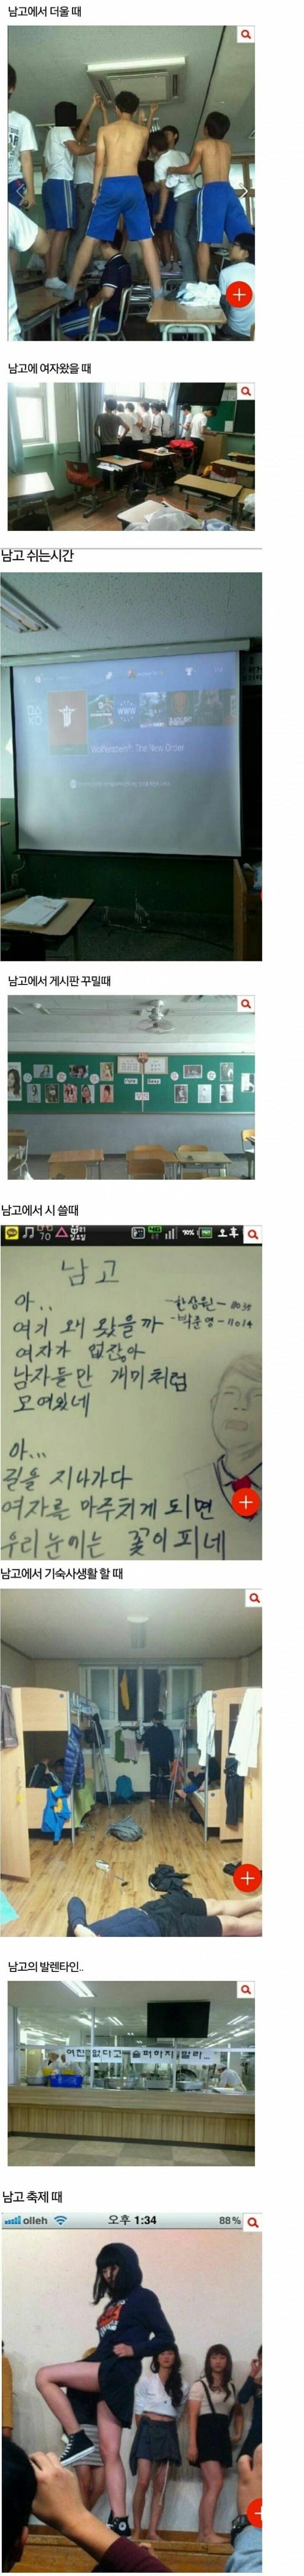 남고에서 더울 때
남고에 여자왔을 때
남고 쉬는시간
Wolfenstein®: The New Order
남고에서 게시판 꾸밀때
남고에서 시 쓸때
70
90%
오후
남고
아..
여기 왜 왔을까
여자가 없잖아
남자들만 개미처럼
모여있네
아...
길을 지나가다
여자를 마주치게 되면
우리눈에는 꽃이 피네
남고에서 기숙사생활 할 때
남고의 발렌타인..
여친 없다고 슬퍼하지 말라...
남고 축제 때
olleh 오후 1:34 88%